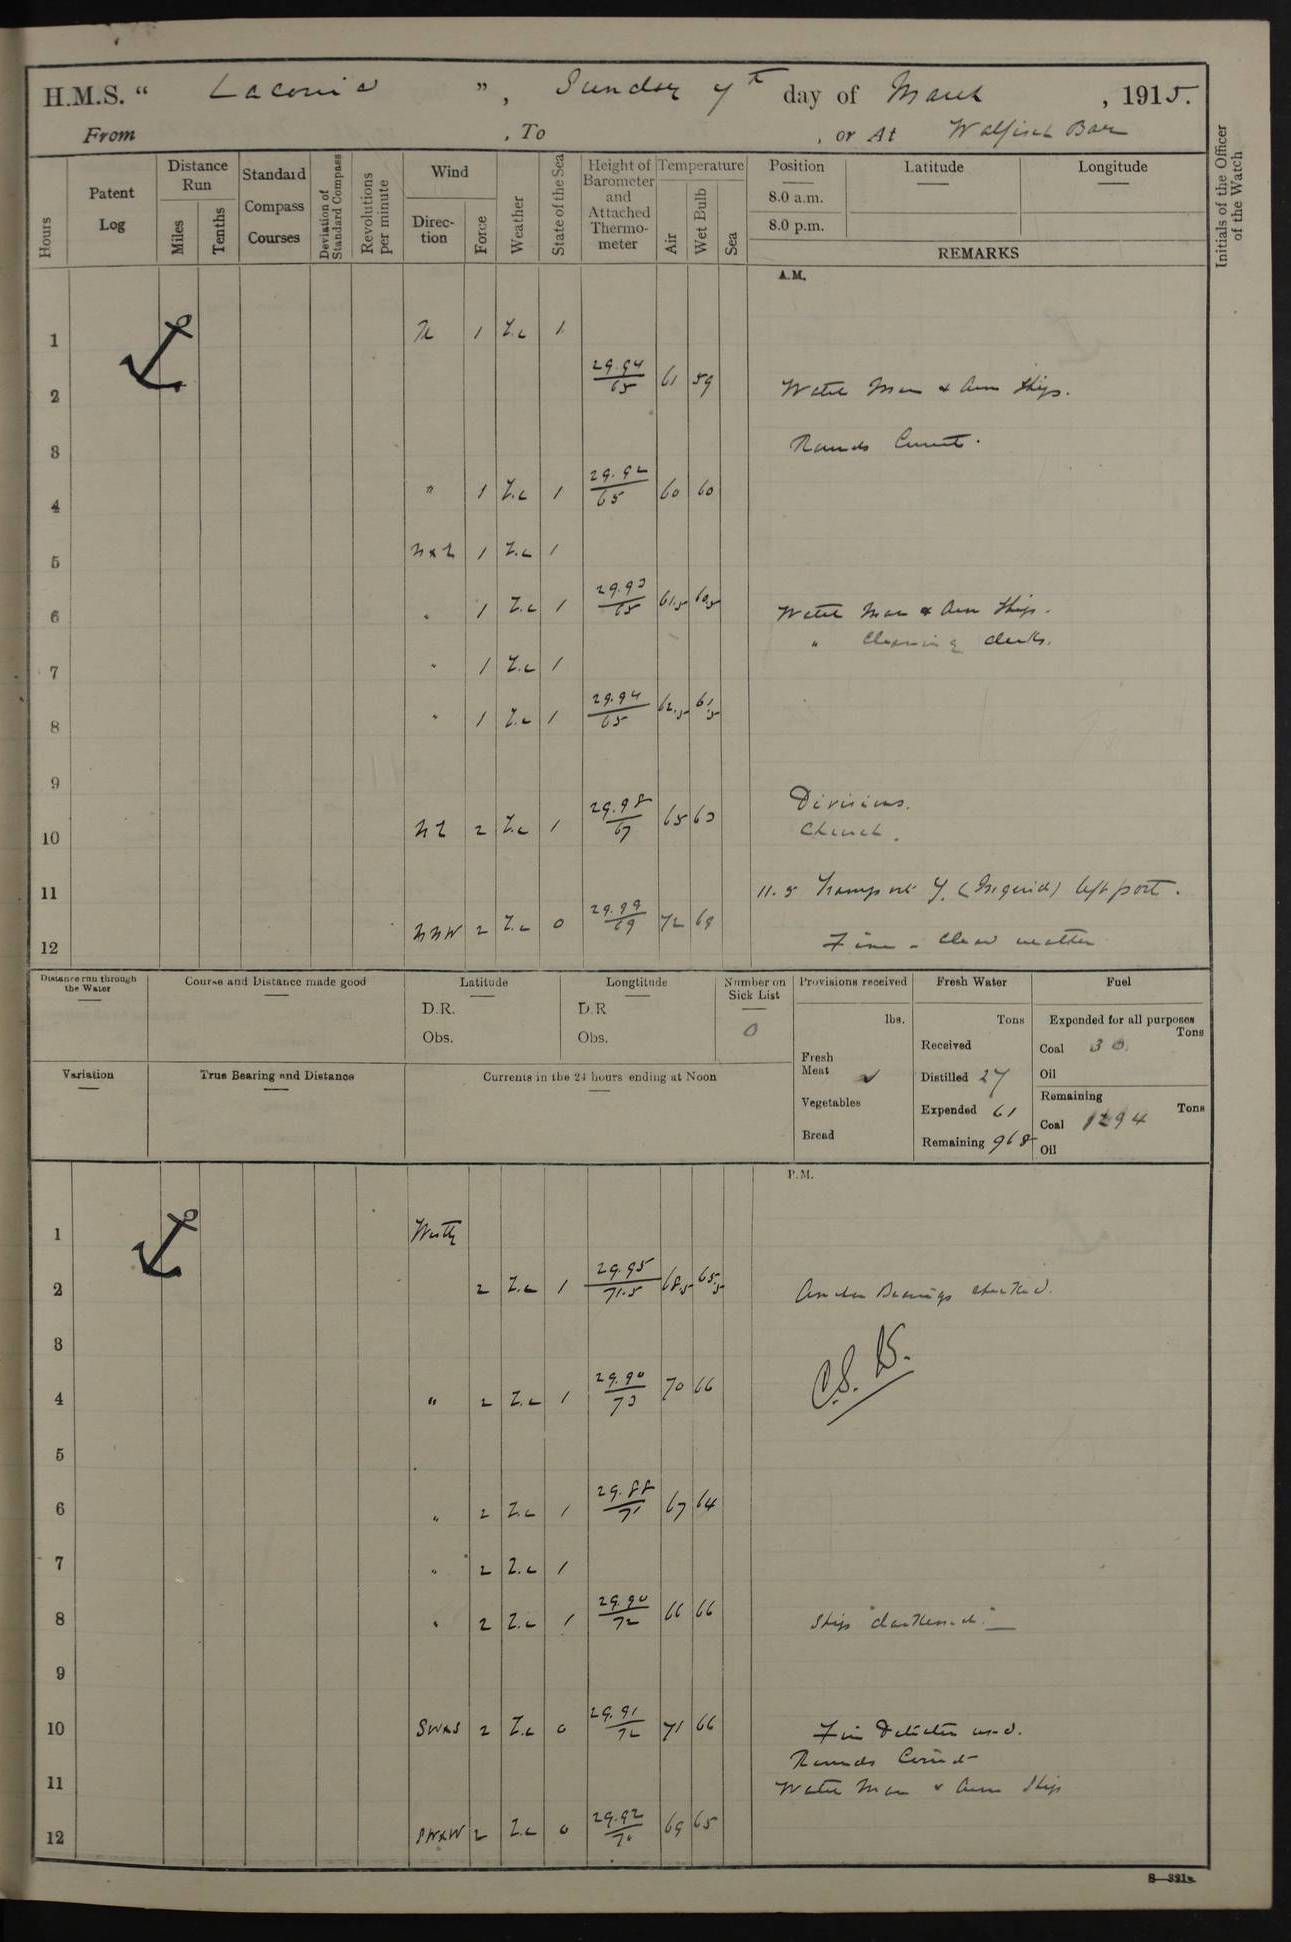 H.M.S. “ Laconia ”, Sunday 7th day of March, 1915.
From , To , or At Walfisch Bay
Hours
Patent Log
Distance Run
Miles
Tenths
Standard Compass Courses
Deviation of Standard Compass
Revolutions per minute
Wind
Direction
Force
Weather
State of the Sea
Height of Barometer and Attached Thermometer
Temperature
Air
Wet Bulb
Sea
Position
8.0 a.m.
8.0 p.m.
Latitude
Longitude
REMARKS
Initials of the Officer of the Watch
A.M.
1 N 1 Z.c 1
2 29.94/65 61 59 Watch Man & Arm Ship.
3 Rounds Correct.
4 " 1 Z.c 1 29.92/65 60 60
5 NxE 1 Z.c 1
6 " 1 Z.c 1 29.93/65 61.5 60.5 Watch Man & Arm Ship.
" Cleaning decks.
7 " 1 Z.c 1
8 " 1 Z.c 1 29.94/65 62.5 61.5
9 Divisions.
10 NE 2 Z.c 1 29.98/67 65 63 Church.
11 11.5 Transport left port.
12 NNW 2 Z.c 0 29.99/69 72 69 Fine - Clear weather
Distance run through the Water
Course and Distance made good
Latitude
D.R.
Obs.
Longtitude
D.R
Obs.
Number on Sick List
0
Provisions received
lbs.
Fresh Meat
Vegetables
Bread
Fresh Water
Tons
Received
Distilled 27
Expended 61
Remaining 968
Fuel
Expended for all purposes
Tons
Coal 30
Oil
Remaining
Tons
Coal 1294
Oil
Variation
True Bearing and Distance
Currents in the 24 hours ending at Noon
P.M.
1 Westly
2 2 Z.c 1 29.95/71.5 68.5 65.5 Anchor Bearings checked.
3
4 " 2 Z.c 1 29.90/73 70 66
5
6 " 2 Z.c 1 29.88/71 67 64
7 " 2 Z.c 1
8 " 2 Z.c 1 29.90/72 66 66 Ship "darkened."
9
10 SWxS 2 Z.c 0 29.91/72 71 66 Fire Detector used.
Rounds Correct
11 Watch Man & Arm Ship
12 SWxW 2 Z.c 0 29.92/70 69 65